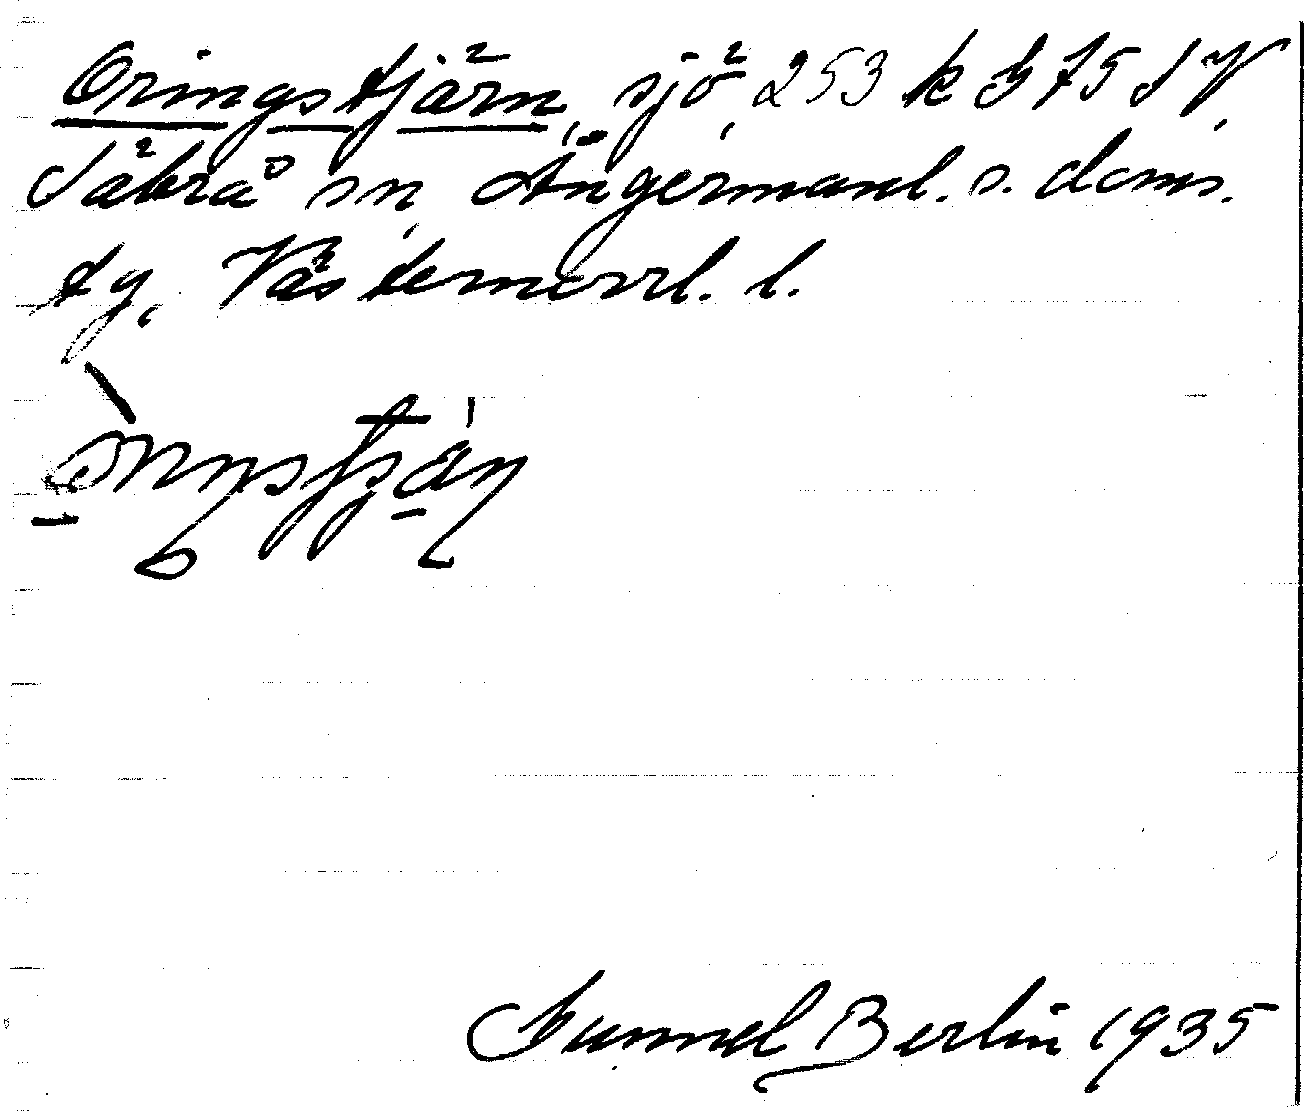 Oringstjärn, sjö, 253 k bl 75 SV
Säbrå sn, Ångermanl. s. doms.
tg, Västernorrl. l.
Gunnel Berlin 1935